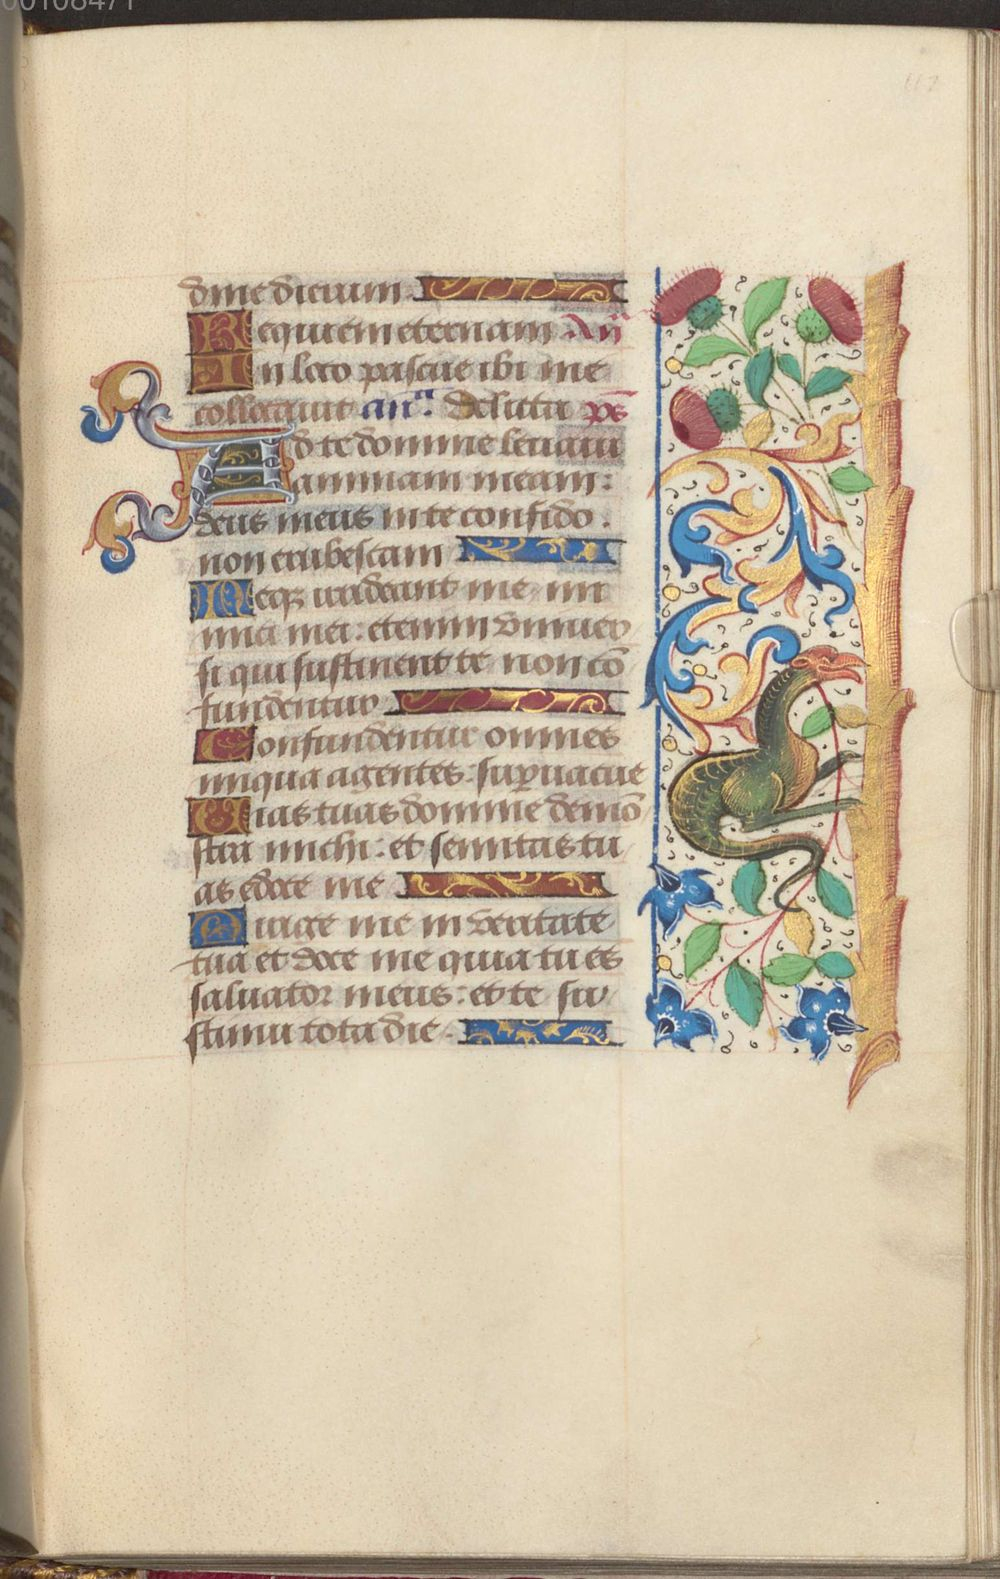 00108471
117
dine dierum.
Requiem eternam Añ
In loco pascue ibi me
collocauit anᵃ. Delicta ps
Ad te domine leuaui
animam meam:
deus meus in te confido.
non erubescam
Neqꝫ irrideant me ini
mici mei: etenim vniuer
si qui sustinent te non cō
fundentur
Confundentur omnes
iniqua agentes: supuacue
Uias tuas domine demō
stra michi: et semitas tu
as edoce me
Dirige me in veritate
tua et doce me quia tu es
saluator meus: et te su
stinui tota die.